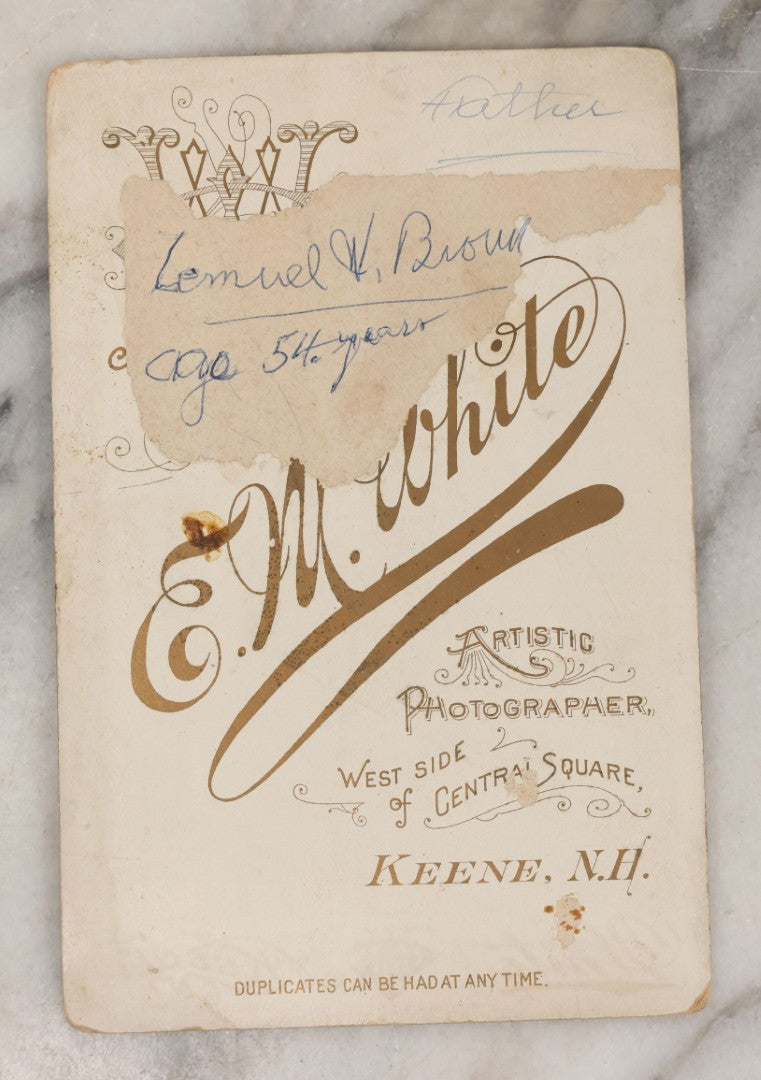 Father
Lemuel H. Brown
age 54 years
E. M. White
ARTISTIC
PHOTOGRAPHER,
WEST SIDE
of CENTRAL SQUARE,
KEENE, N.H.
DUPLICATES CAN BE HAD AT ANY TIME.